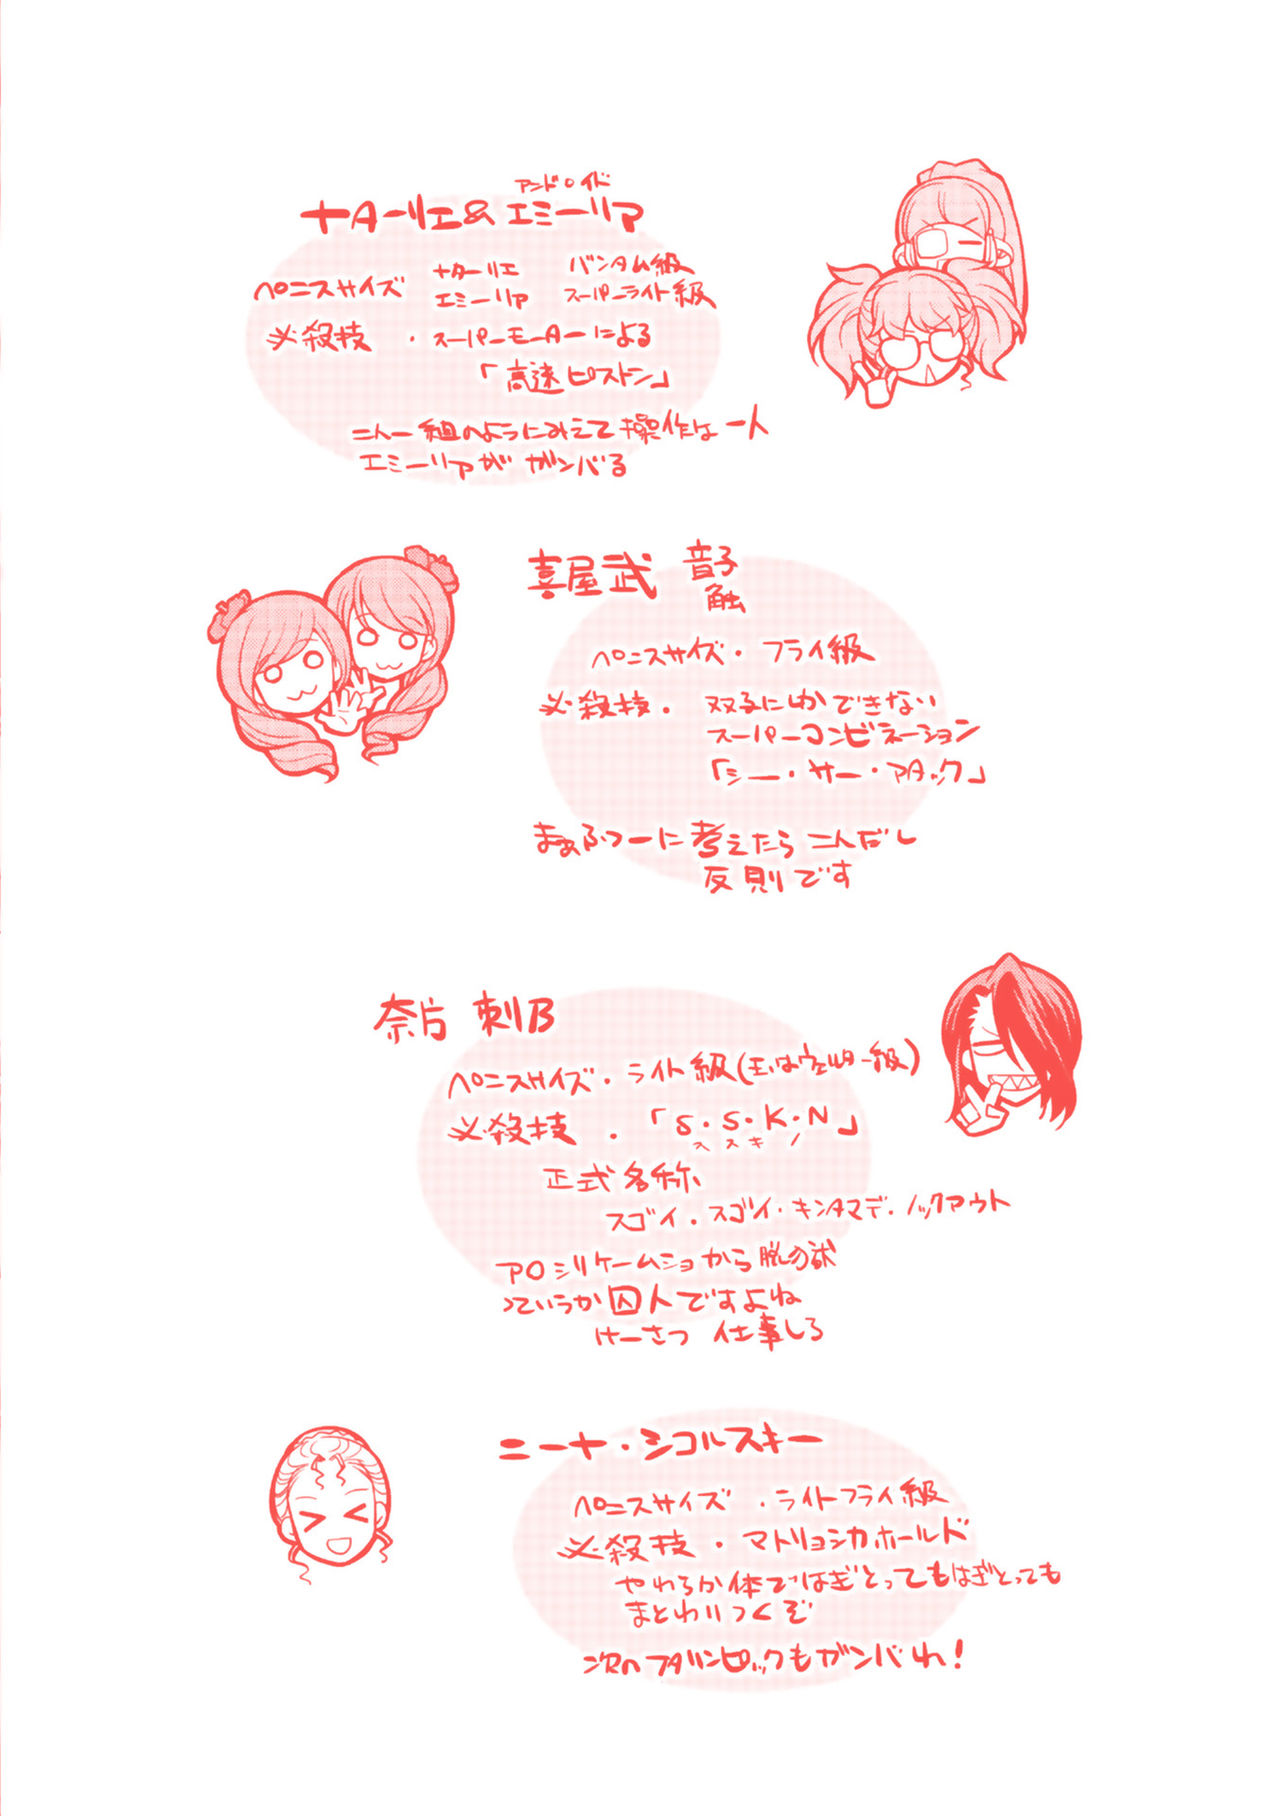 アンドロイド
ナターリエ&エミーリア
ペニスサイズ ナターリエ バンタム級
エミーリア スーパーライト級
必殺技 ・スーパーモーターによる
「高速ピストン」
二人一組のようにみえて操作は一人
エミーリアがガンバる
喜屋武 音子
触
ペニスサイズ・フライ級
必殺技・双子にしかできない
スーパーコンビネーション
「シー・サー・アタック」
まぁふつーに考えたら二人だし
反則です
奈片 刺B
ペニスサイズ・ライト級(玉はウェルター級)
必殺技・「S・S・K・N」
ススキノ
正式名称
スゴイ・スゴイ・キンタマデ・ノックアウト
アOシリケームショから脱の獄
っていうか囚人ですよね
けーさつ 仕事しろ
ニーナ・シコルスキー
ペニスサイズ・ライトフライ級
必殺技・マトリョシカホールド
やわらか体ではぎとってもはぎとっても
まとわりつくぞ
次のフタリンピックもガンバれ!